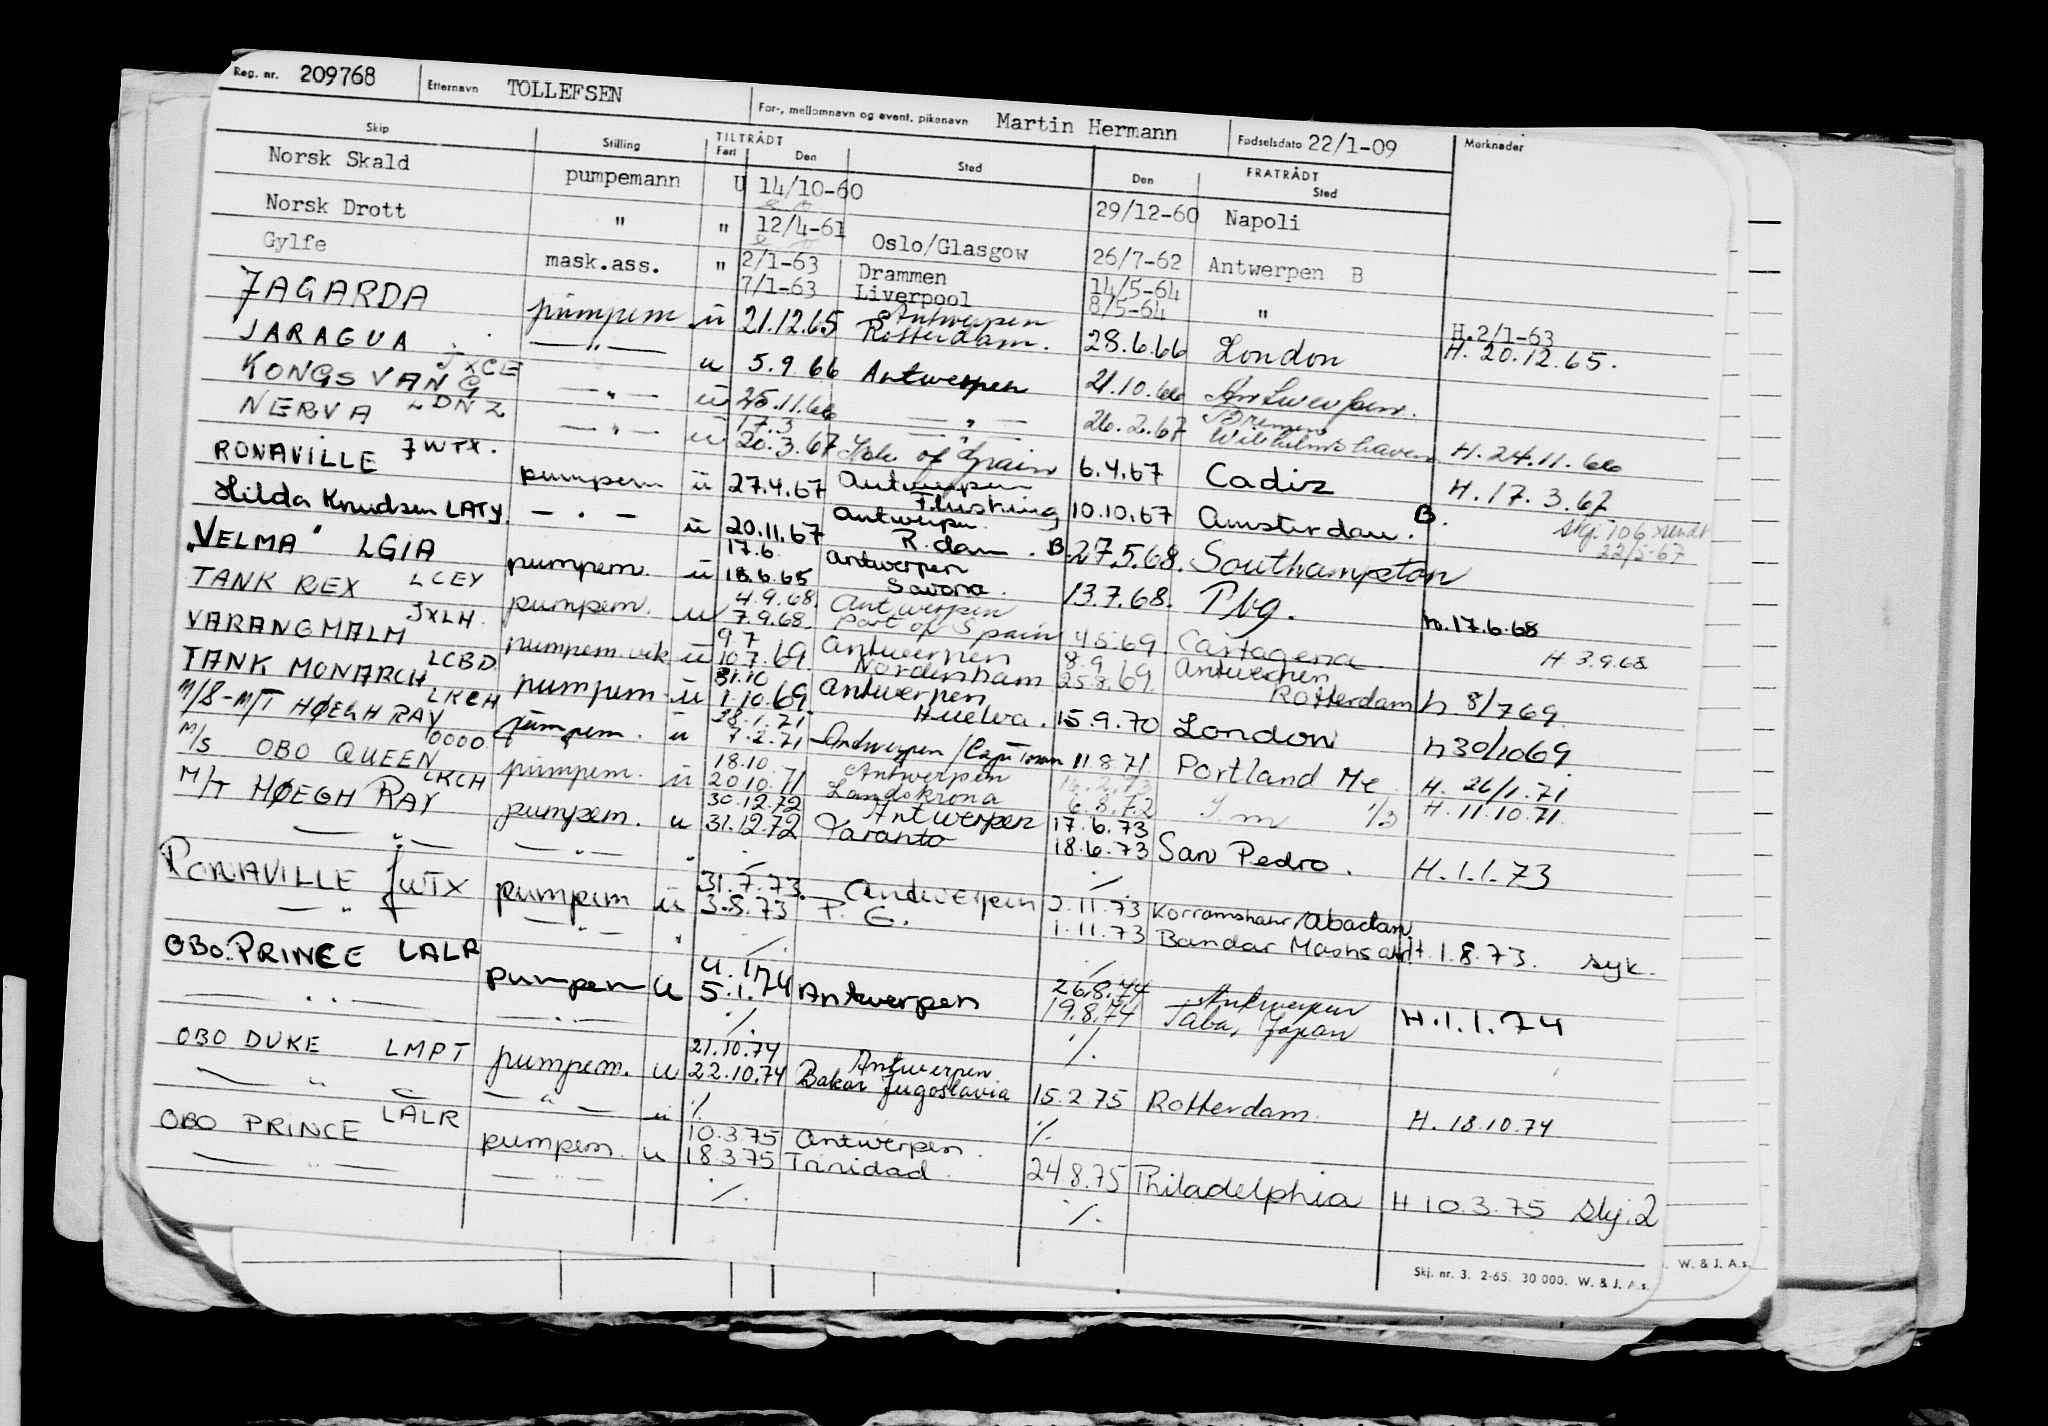 Reg. nr. 209768 Etternavn TOLLEFSEN For-, mellomnavn og event. pikenavn Martin Hermann Fødselsdato 22/1-09 Merknader
Skip Stilling TILTRÅDT Fart Den Sted FRATRÅDT Den Sted
Norsk Skald pumpemann U 14/10-60 29/12-60 Napoli
Norsk Drott " " 12/4-61 Oslo/Glasgow 26/7-62 Antwerpen B
Gylfe mask.ass. " 2/1-63 Drammen 14/5-64
7/1-63 Liverpool 8/5-64 " H.2/1-63
JAGARDA pumpem u 21.12.65 Antwerpen
Rotterdam. 28.6.66 London H. 20.12.65.
JARAGUA JXCE — " — u 5.9 66 Antwerpen 21.10.66 Antwerpen.
KONGSVANG LDNZ — " — u 25.11.66 — " — 26.2.67 Bremen
Wilhelmshaven H. 24.11.66
NERVA JWTX. — " — u 17.3
20.3.67 of Spain 6.4.67 Cadiz H. 17.3.67
RONAVILLE pumpem u 27.4.67 Antwerpen
Flushing 10.10.67 Amsterdam. B. Skj. 106 sendt
22/5-67
Hilda Knudsen LATY. — " — u 20.11.67 Antwerpen.
R.dam. B. 27.5.68. Southampton
"VELMA" LGIA pumpem. u 17.6
18.6.65 Antwerpen
Savona. 13.7.68. Pbg. h.17.6.68
TANK REX LCEY pumpem. u 4.9.68.
7.9.68. Antwerpen
Port of Spain 4.5.69 Cartagena H 3.9.68
VARANGMALM JXLH. pumpem.vik u 9.7
10.7.69. Antwerpen
Nordenham 8.9
25.8.69. Antwerpen
Rotterdam h. 8/769.
TANK MONARCH LCBD pumpem. u 31.10
1.10.69 Antwerpen
Huelva. 15.9.70 London h30/1069
M/S-M/T HØEGH RAY LKCH pumpem. u 28.1.71
7.2.71 Antwerpen/Cape Town 11.8.71 Portland Me H. 26/1.71
M/S OBO QUEEN 0000 pumpem. u 18.10
20.10.71 Antwerpen
Landskrona 16.2.73
6.8.72 1/3 H. 11.10.71.
M/T HØEGH RAY LKCH pumpem. u 30.12.72
31.12.72 Antwerpen
Taranto 17.6.73
18.6.73 San Pedro. H. 1.1.73
— " — — " — " ./. ./.
RONAVILLE JWTX pumpem u 31.7.73.
3.8.73 Antwerpen
P. G. 2.11.73
1.11.73 Korramshahr/Abadan.
Bandar Mashsahr H. 1.8.73. syk.
— " — — " — " ./. ./.
OBO.PRINCE LALR pumpem u 4.1.74
5.1.74 Antwerpen 26.8.74
19.8.74 Antwerpen
Japan H.1.1.74
— " — — " — ./. ./.
OBO DUKE LMPT pumpem. u 21.10.74
22.10.74 Antwerpen
Bakar Jugoslavia 15.2.75 Rotterdam. H. 18.10.74
— " — — " — u ./. ./.
OBO PRINCE LALR pumpem. u 10.3.75
18.3.75 Antwerpen.
Trinidad. 24.8.75 Philadelphia H 10.3.75 Skj.2
— " — — " — ./. ./.
Skj. nr. 3. 2-65. 30 000. W. & J. A.s.
. W. & J. A.s.